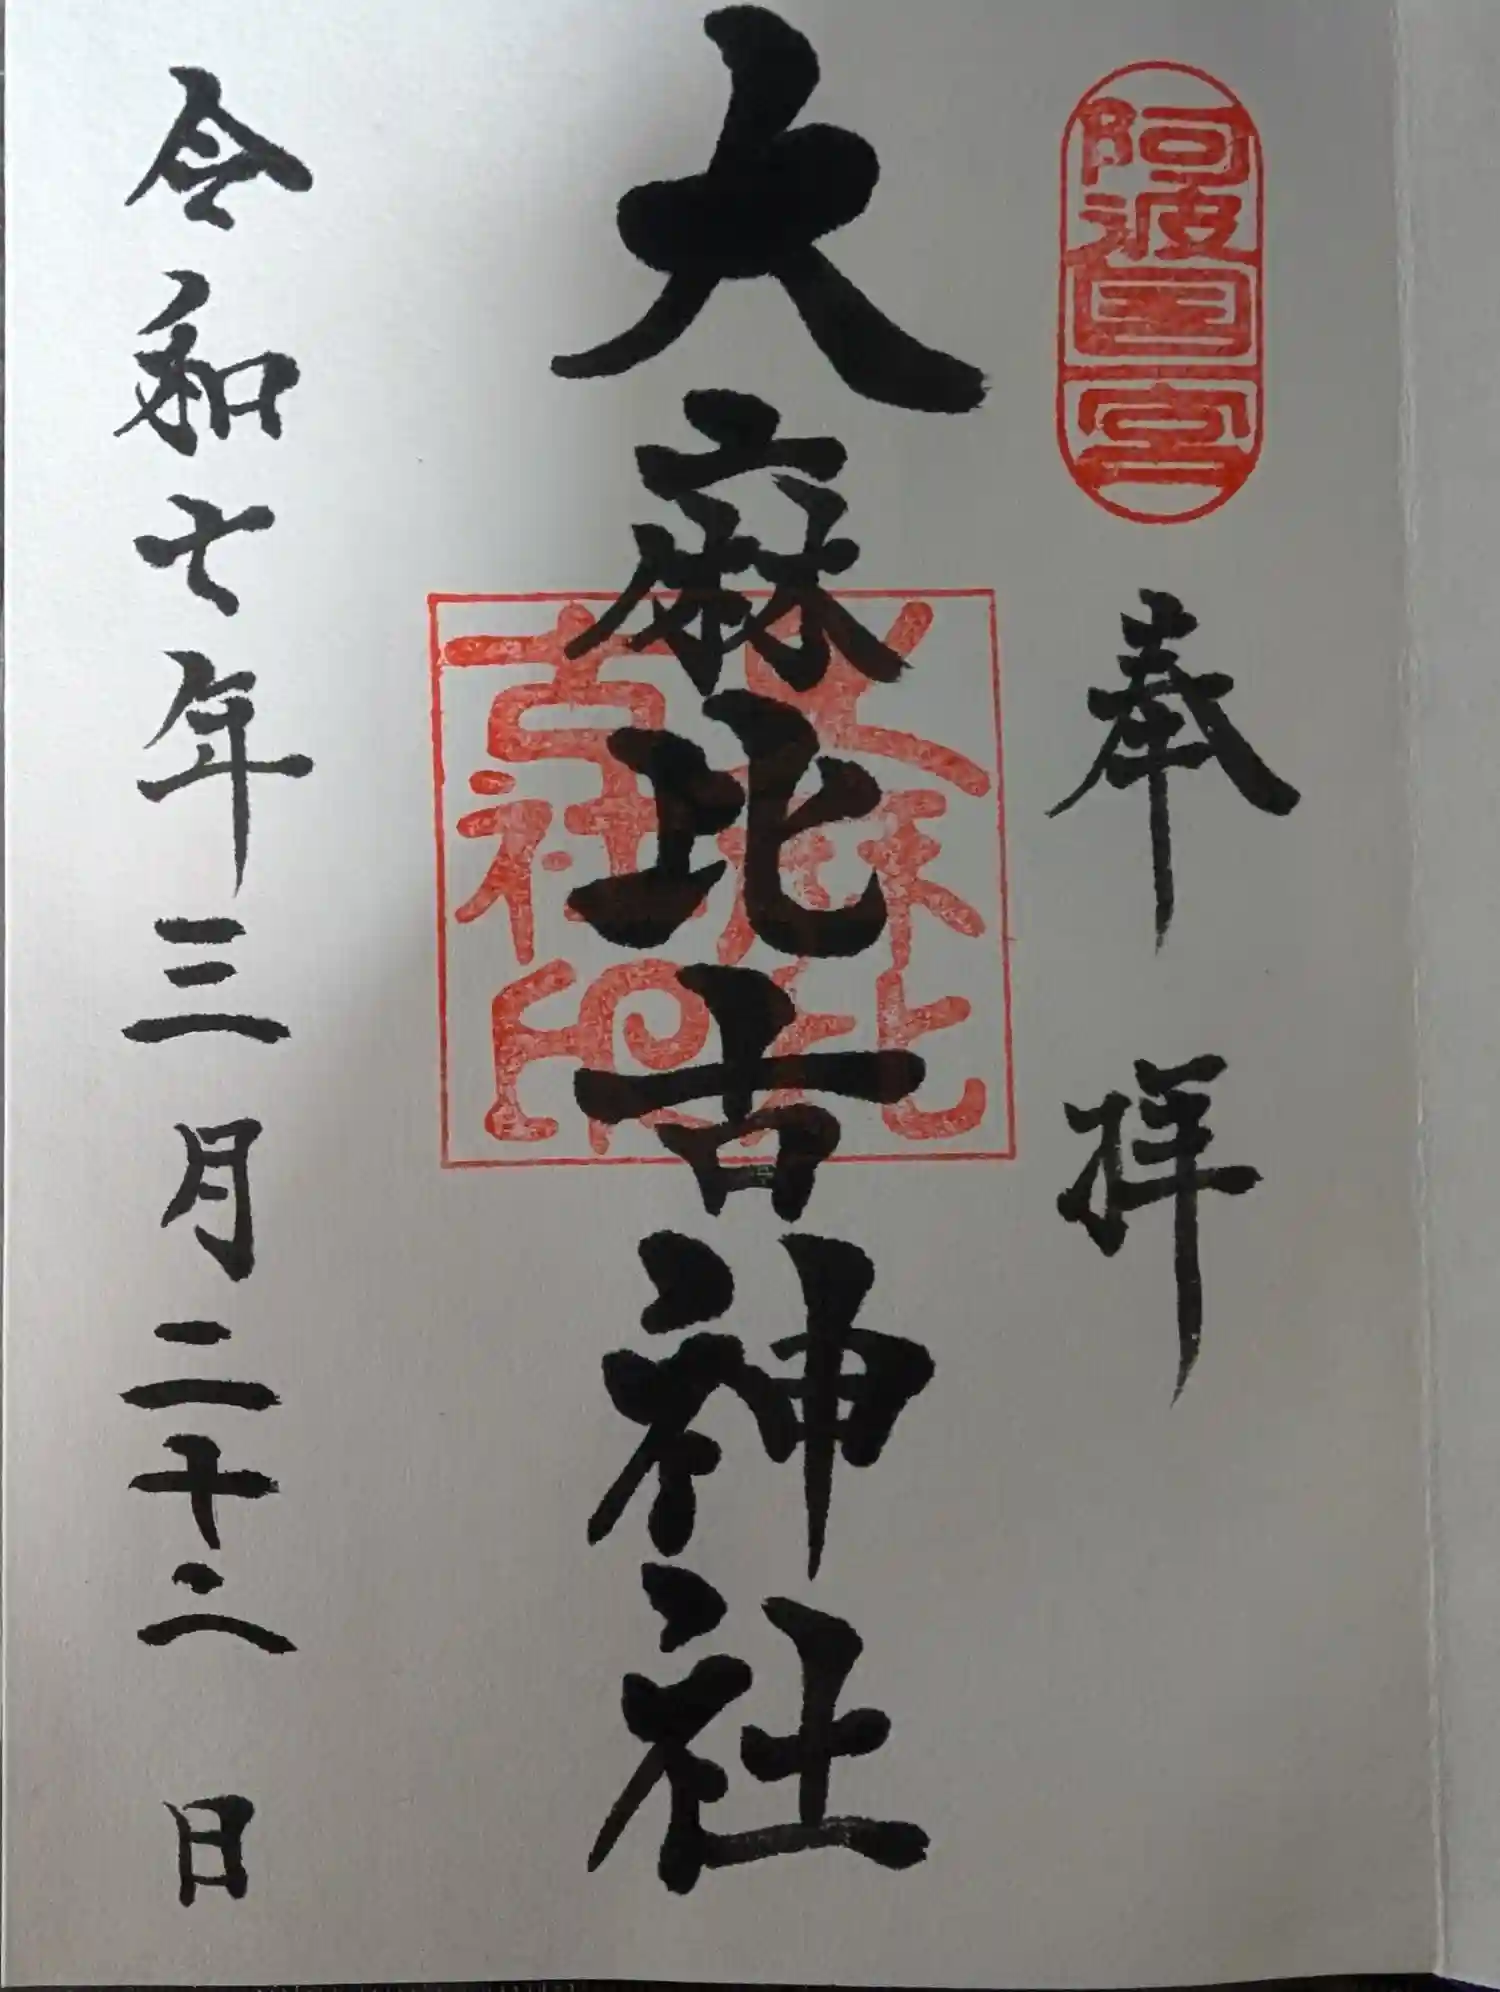 阿波国一宮
奉拝
大麻比古神社
大麻比
古社印
令和七年三月二十二日